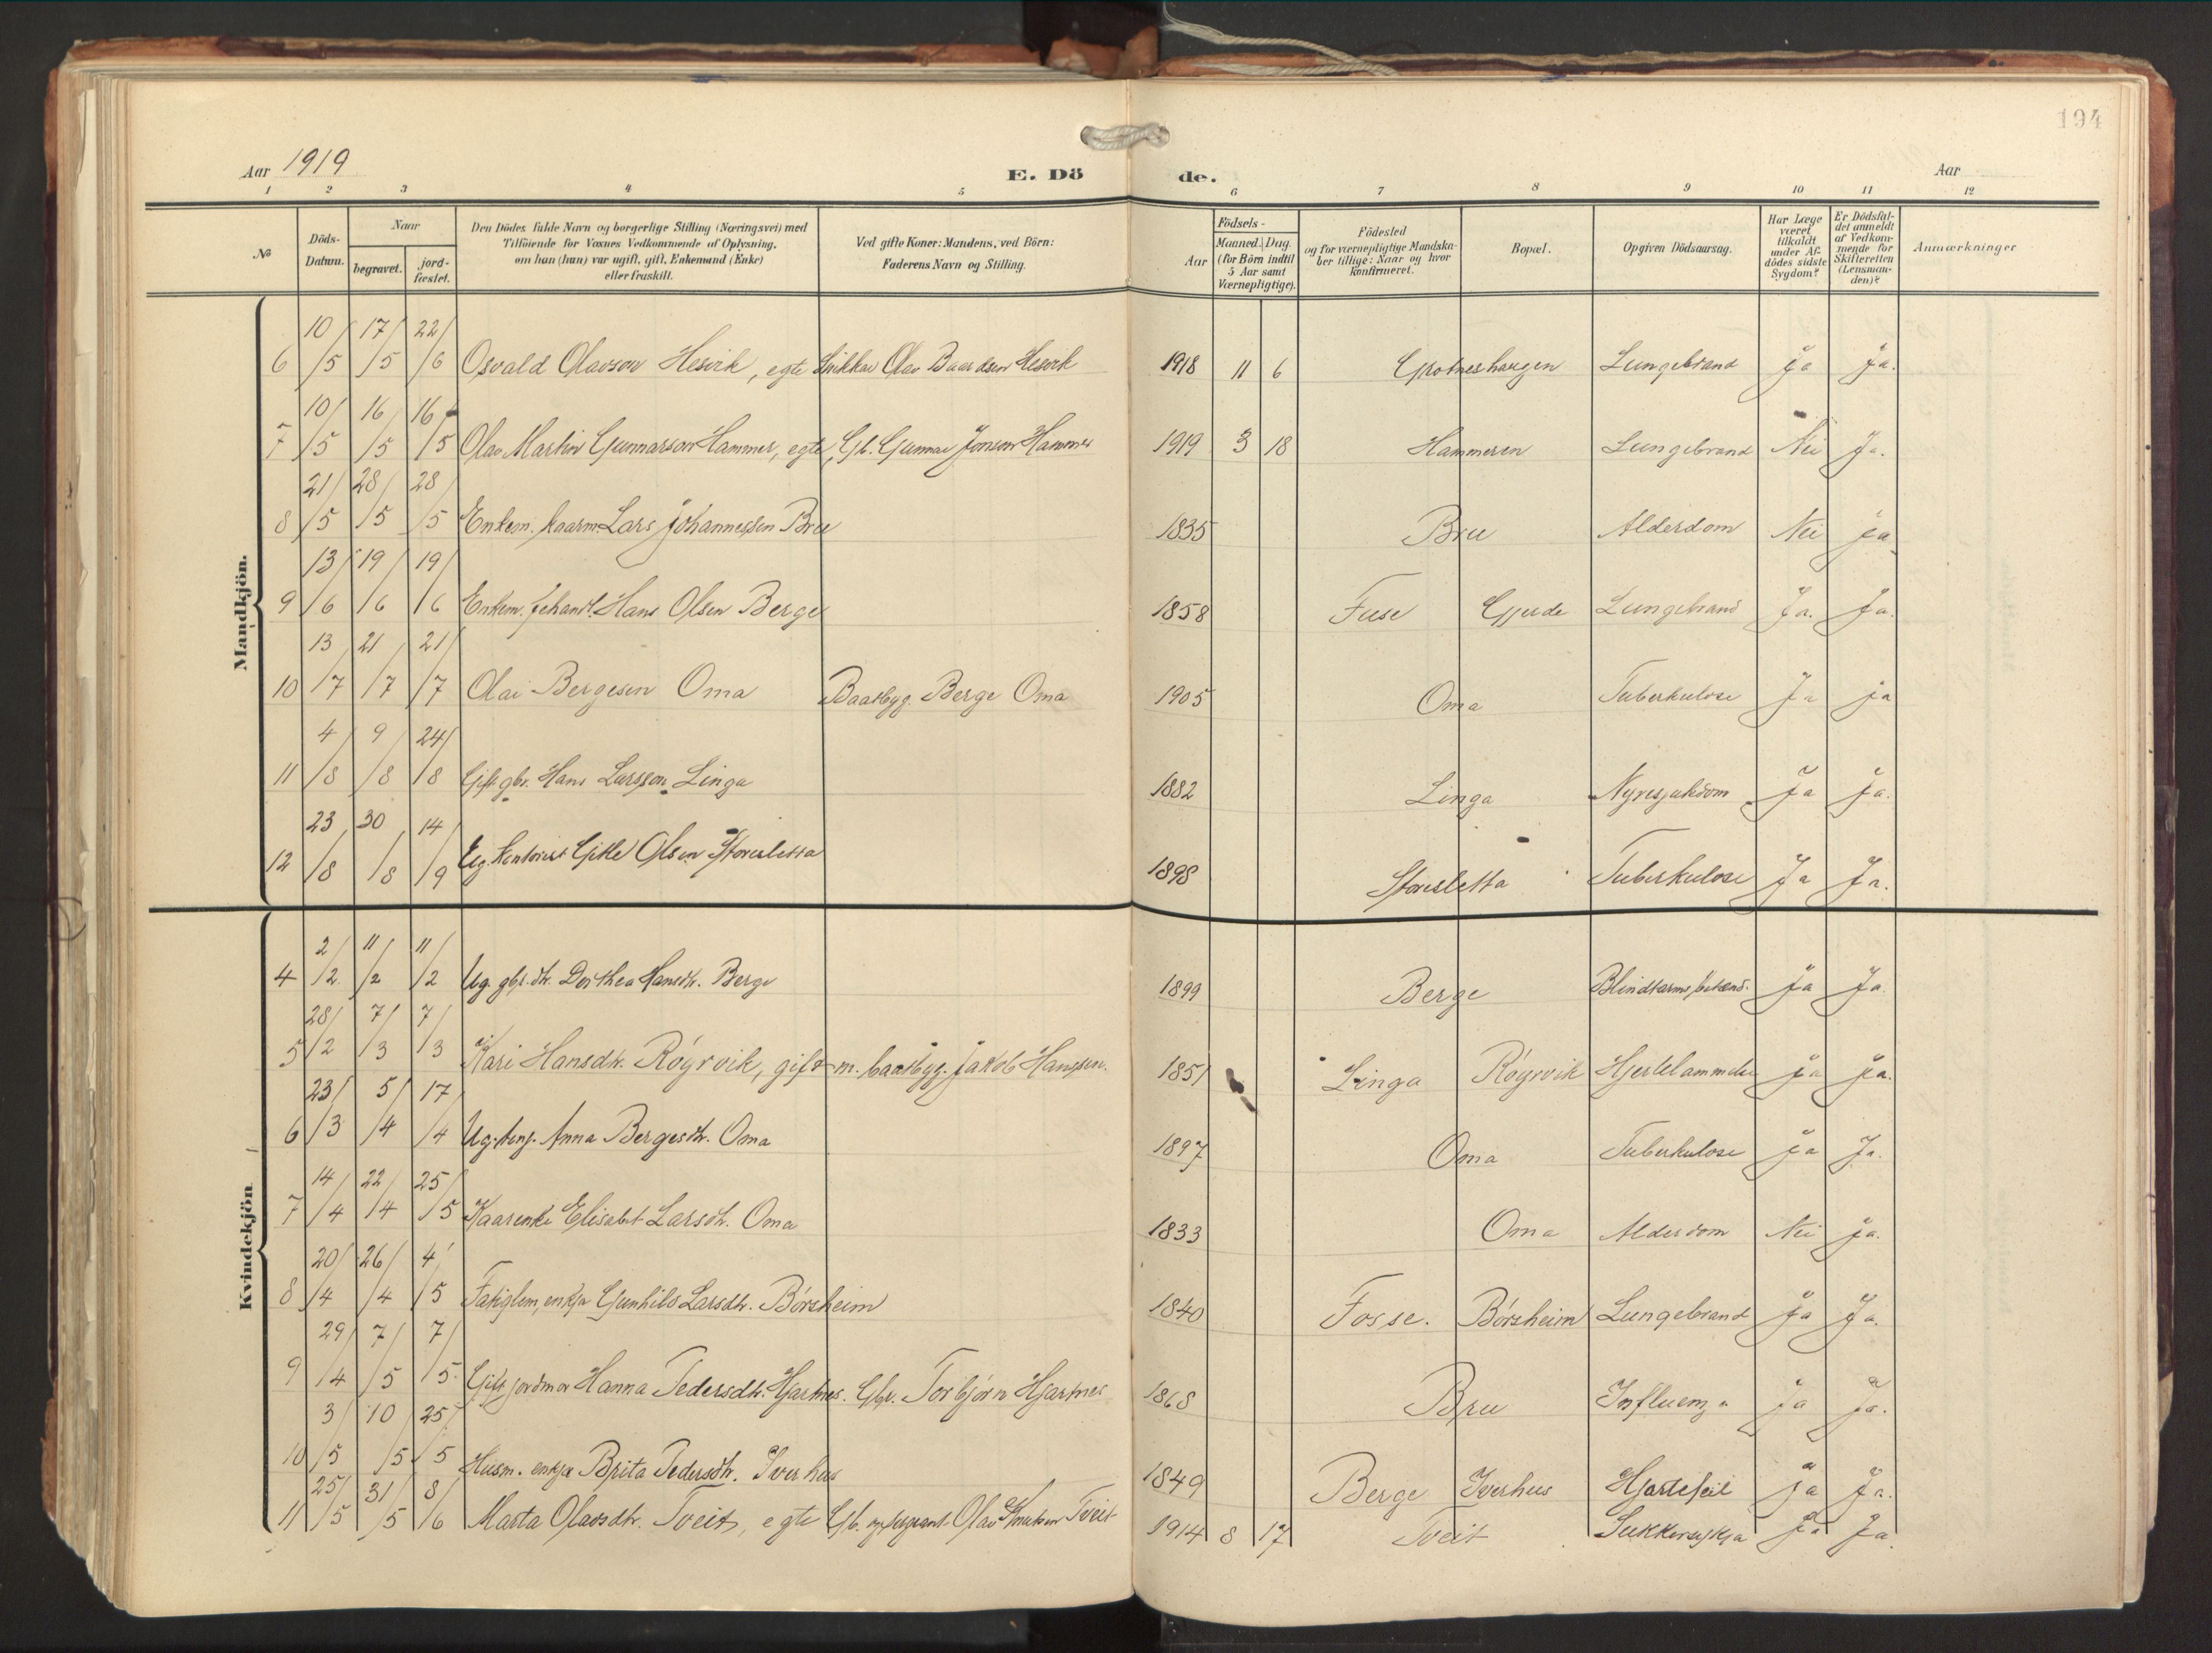 194
Aar 1919
E. Dö de.
Aar
1 2 3 4 5 6 7 8 9 10 11 12
№
Döds-Datum.
Naar
begravet.
jord-fæstet.
Den Dödes fulde Navn og borgerlige Stilling (Næringsvei) med Tilföiende for Voxnes Vedkommende af Oplysning, om han (hun) var ugift, gift, Enkemand (Enke) eller fraskilt.
Ved gifte Koner: Mandens, ved Börn: Faderens Navn og Stilling.
Födsels-
Aar
Maaned. Dag.
(for Börn indtil 5 Aar samt Værnepligtige).
Födested og for værnepligtige Mandskaber tillige: Naar og hvor konfirmeret.
Bopæl.
Opgiven Dödsaarsag.
Har Læge været tilkaldt under Afdödes sidste Sygdom?
Er Dödsfaldet anmeldt af Vedkommende for Skifteretten (Lensmanden)?
Anmærkninger
Mandkjön.
6 10/5 17/5 22/6 Osvald Olavson Hesvik, egte Snikkar Olav Baardsen Hesvik 1918 11 6 Grotneshaugen Lungebrand Ja Ja.
7 10/5 16/5 16/5 Olav Martin Gunnarson Hammer, egte, Gb. Gunnar Jonson Hammer 1919 3 18 Hammeren Lungebrand Nei Ja.
8 21/5 28/5 28/5 Enkem. kaarm. Lars Johannessen Bru 1835 Bru Alderdom Nei Ja
9 13/6 19/6 19/6 Enkem. fehandl. Hans Olsen Berge 1858 Fuse Gjerde Lungebrand Ja. Ja.
10 13/7 21/7 21/7 Olai Bergesen Oma Baatbyg. Berge Oma 1905 Oma Tuberkulose Ja Ja
11 4/8 9/8 24/8 Gift gbr. Hans Larsson Linga 1882 Linga Nyresjukdom Ja Ja.
12 23/8 30/8 14/9 Ug. kontorist Gitle Olsen Storesletta 1898 Storesletta Tuberkulose Ja Ja.
Kvindekjön
4 2/2 11/2 11/2 Ug. gbr. dtr. Dorthea Hansdtr. Berge 1899 Berge Blindtarmsbetænd. Ja Ja
5 28/2 7/3 7/3 Kari Hansdtr. Röyrvik, gift m. baatbyg. Jakob Hanssen. 1851 Linga Röyrvik Hjertelammelse Ja Ja.
6 23/3 5/4 17/4 Ug. Anna Bergesdtr. Oma 1897 Oma Tuberkulose Ja Ja.
7 14/4 22/4 25/5 Kaarenke Elisabet Larsdtr. Oma 1833 Oma Alderdom Nei Ja.
8 20/4 26/4 4/5 Fatiglem, enkja Gunhild Larsdtr. Börsheim 1840 Fosse. Börsheim Lungebrand Ja Ja.
9 29/4 7/5 7/5. Gift jordmor Hanna Pedersdtr. Hjartnes. Gbr. Torbjørn Hjartnes 1868 Bru Influenza Ja Ja.
10 3/5 10/5 25/5 Husm. enkja Brita Pedersdtr. Iverhus 1849 Berge Iverhus Hjartefeil Ja Ja.
11 25/5 31/5 8/6 Marta Olavsdtr. Tveit, egte Gb. og sergeant Olav Tveit 1914 8 17 Tveit Sukkersykja Ja Ja.